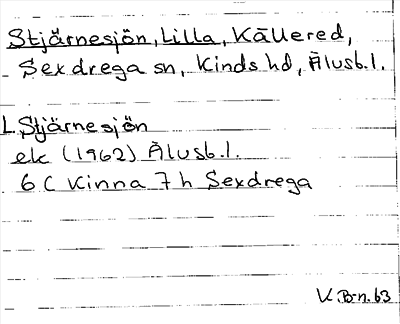 Stjärnesjön, Lilla, Källered,
Sexdrega sn, Kinds hd, Älvsb.l.
L. Stjärnesjön
ek (1962) Älvsb.l.
6 C Kinna 7h Sexdrega
V.B-n.63